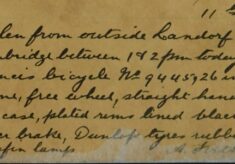 11
len from outside Landorf
bridge between 1 & 2 pm today
ncis bicycle No 9445926
me, free wheel, straight han
case, plated rims lined black
er brake, Dunlop tyres rubber
lamp